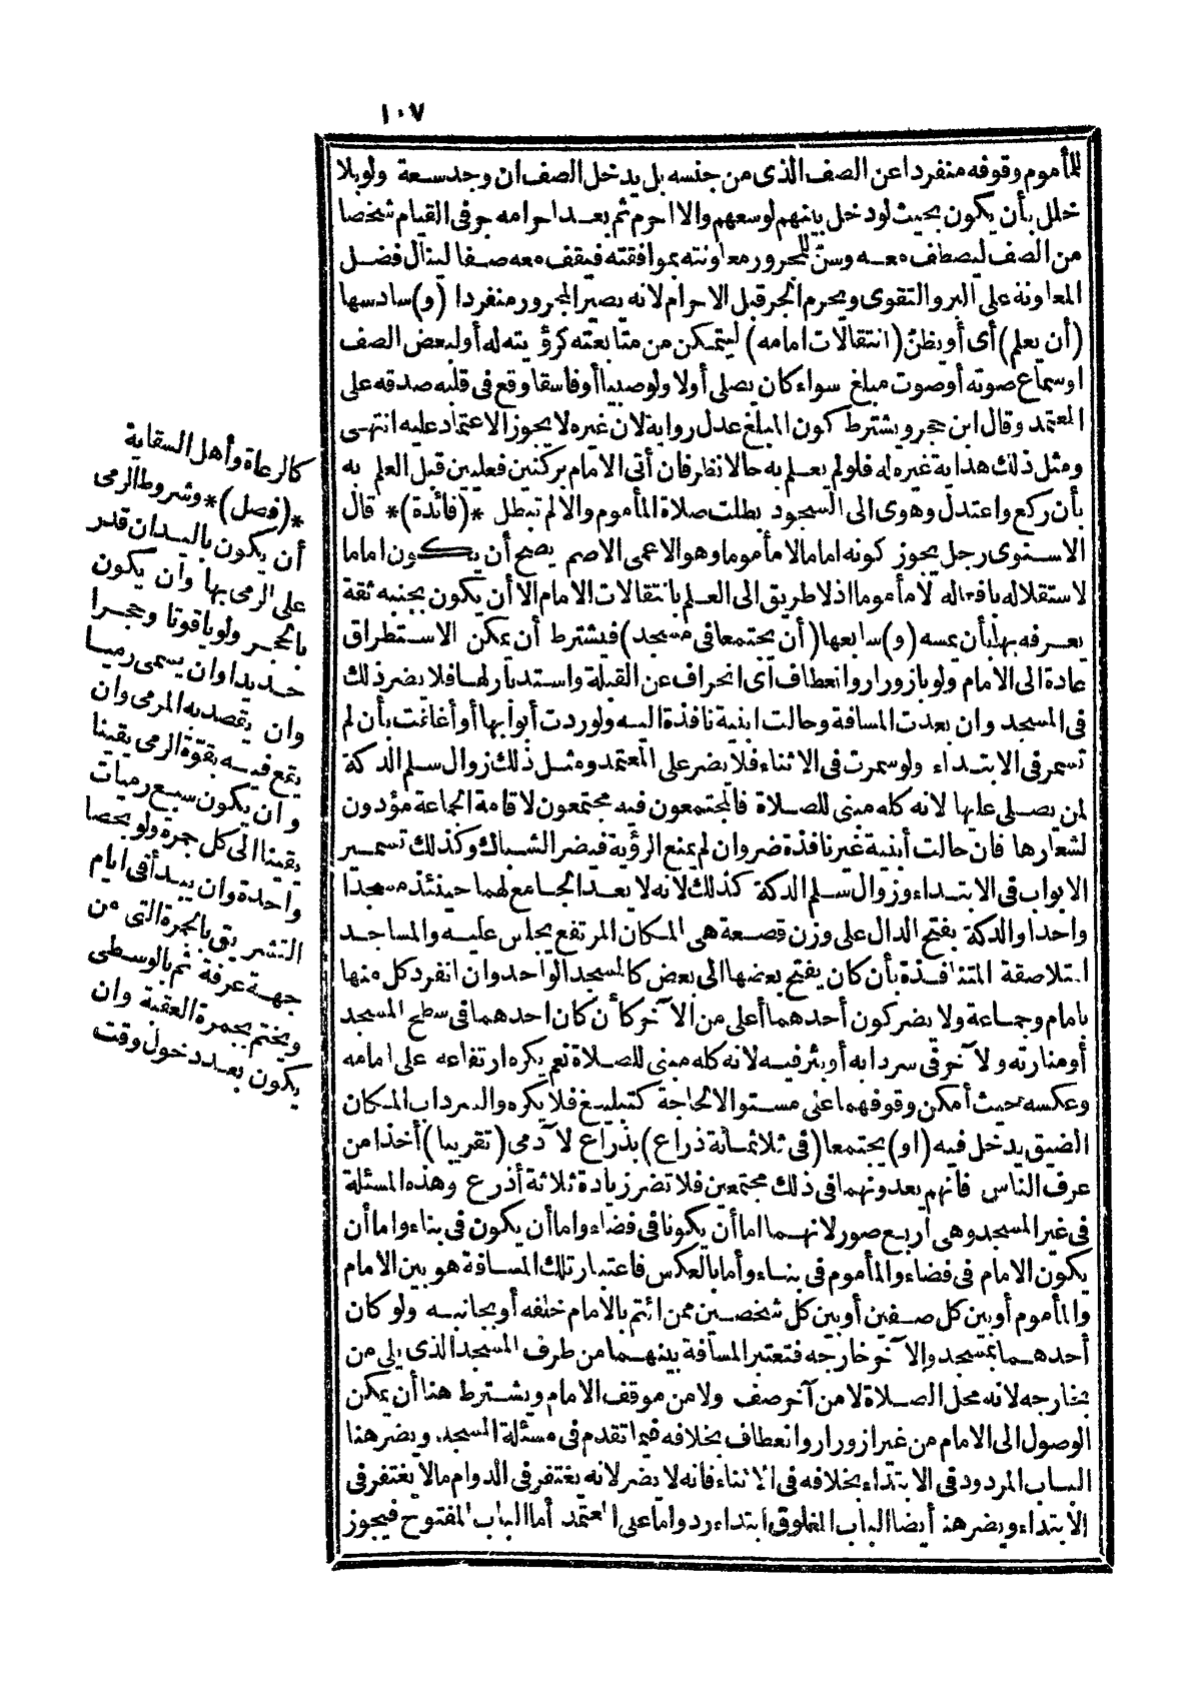 ١٠٧
للمأموم وقوفه منفردا عن الصف الذى من جنسه بل يدخل الصف ان وجد سعة ولو بلا
خلل بأن يكون بحيث لو دخل بينهم لوسعهم والا احرم ثم بعد احرامه جر فى القيام شخصا
من الصف ليصطف معه وسن للمجرور معاونته بموافقته فيقف معه صفا لينال فضل
المعاونة على البر والتقوى ويحرم الجر قبل الاحرام لانه يصير المجرور منفردا (و) سادسها
(أن يعلم) أى أو يظن (انتقالات امامه) ليتمكن من متابعته كرؤيته له أو لبعض الصف
او سماع صوته أو صوت مبلغ سواء كان يصلى أولا ولو صبيا أو فاسقا وقع فى قلبه صدقه على
المعتمد وقال ابن حجر ويشترط كون المبلغ عدل رواية لان غيره لا يجوز الاعتماد عليه انتهى
ومثل ذلك هداية غيره له فلو لم يعلم به حالا نظر فان أتى الامام بركنين فعليين قبل العلم به
بأن ركع واعتدل وهوى الى السجود بطلت صلاة المأموم والا لم تبطل *(فائدة)* قال
الاسنوى رجل يجوز كونه اماما لا مأموما وهو الاعمى الاصم يصح أن يكون اماما
لاستقلاله بافعاله لا مأموما اذ لا طريق الى العلم بانتقالات الامام الا أن يكون بجنبه ثقة
يعرفه بها بأن يمسه (و) سابعها (أن يجتمعا فى مسجد) فيشترط أن يمكن الاستطراق
عادة الى الامام ولو بازورار وانعطاف أى انحراف عن القبلة واستدبار لها فلا يضر ذلك
فى المسجد وان بعدت المسافة وحالت ابنية نافذة اليه ولو ردت أبوابها أو أغلقت بأن لم
تسمر فى الابتداء ولو سمرت فى الاثناء فلا يضر على المعتمد ومثل ذلك زوال سلم الدكة
لمن يصلى عليها لانه كله مبنى للصلاة فالمجتمعون فيه مجتمعون لاقامة الجماعة مؤدون
لشعارها فان حالت أبنية غير نافذة ضر وان لم يمنع الرؤية فيضر الشباك وكذلك تسمير
الابواب فى الابتداء وزوال سلم الدكة كذلك لانه لا يعد الجامع لهما حينئذ مسجدا
واحدا والدكة بفتح الدال على وزن قصعة هى المكان المرتفع يجلس عليه والمساجد
المتلاصقة المتنافذة بأن كان يفتح بعضها الى بعض كالمسجد الواحد وان انفرد كل منها
بامام وجماعة ولا يضر كون أحدهما أعلى من الآخر كأن كان احدهما فى سطح المسجد
أو منارته والآخر فى سردابه أو بئر فيه لانه كله مبنى للصلاة نعم يكره ارتفاعه على امامه
وعكسه حيث أمكن وقوفهما على مستو الا لحاجة كتبليغ فلا يكره والسرداب المكان
الضيق يدخل فيه (او) يجتمعا (فى ثلثمائة ذراع) بذراع الآدمى (تقريبا) أخذا من
عرف الناس فانهم يعدونهما فى ذلك مجتمعين فلا تضر زيادة ثلاثة أذرع وهذه المسئلة
فى غير المسجد وهى أربع صور لانهما اما أن يكونا فى فضاء واما أن يكون فى بناء واما أن
يكون الامام فى فضاء والمأموم فى بناء وأما بالعكس فاعتبار تلك المسافة هو بين الامام
والمأموم أو بين كل صفين أو بين كل شخصين ممن ائتم بالامام خلفه أو بجانبه ولو كان
أحدهما بمسجد والآخر خارجه فتعتبر المسافة بينهما من طرف المسجد الذى يلى من
بخارجه لانه محل الصلاة لا من آخر صف ولا من موقف الامام ويشترط هنا أن يمكن
الوصول الى الامام من غير ازورار وانعطاف بخلافه فيما تقدم فى مسئلة المسجد ويضر هنا
الباب المردود فى الابتداء بخلافه فى الاثناء فانه لا يضر لانه يغتفر فى الدوام مالا يغتفر فى
الابتداء ويضر هنا أيضا الباب المغلوق ابتداء ردوا ما على المعتمد أما الباب المفتوح فيجوز
كالرعاة وأهل السقاية
*(فصل)* وشروط الرمى
أن يكون باليد ان قدر
على الرمى بها وان يكون
بالحجر ولو ياقوتا وحجرا
حديدا وان يسمى رميا
وان يقصد به المرمى وان
يقع فيه بقوة الرمى يقينا
وان يكون سبع رميات
يقينا الى كل جمرة ولو بحصا
واحدة وان يبدأ فى ايام
التشريق بالجمرة التى من
جهة عرفة ثم بالوسطى
ويختم بجمرة العقبة وان
يكون بعد دخول وقت